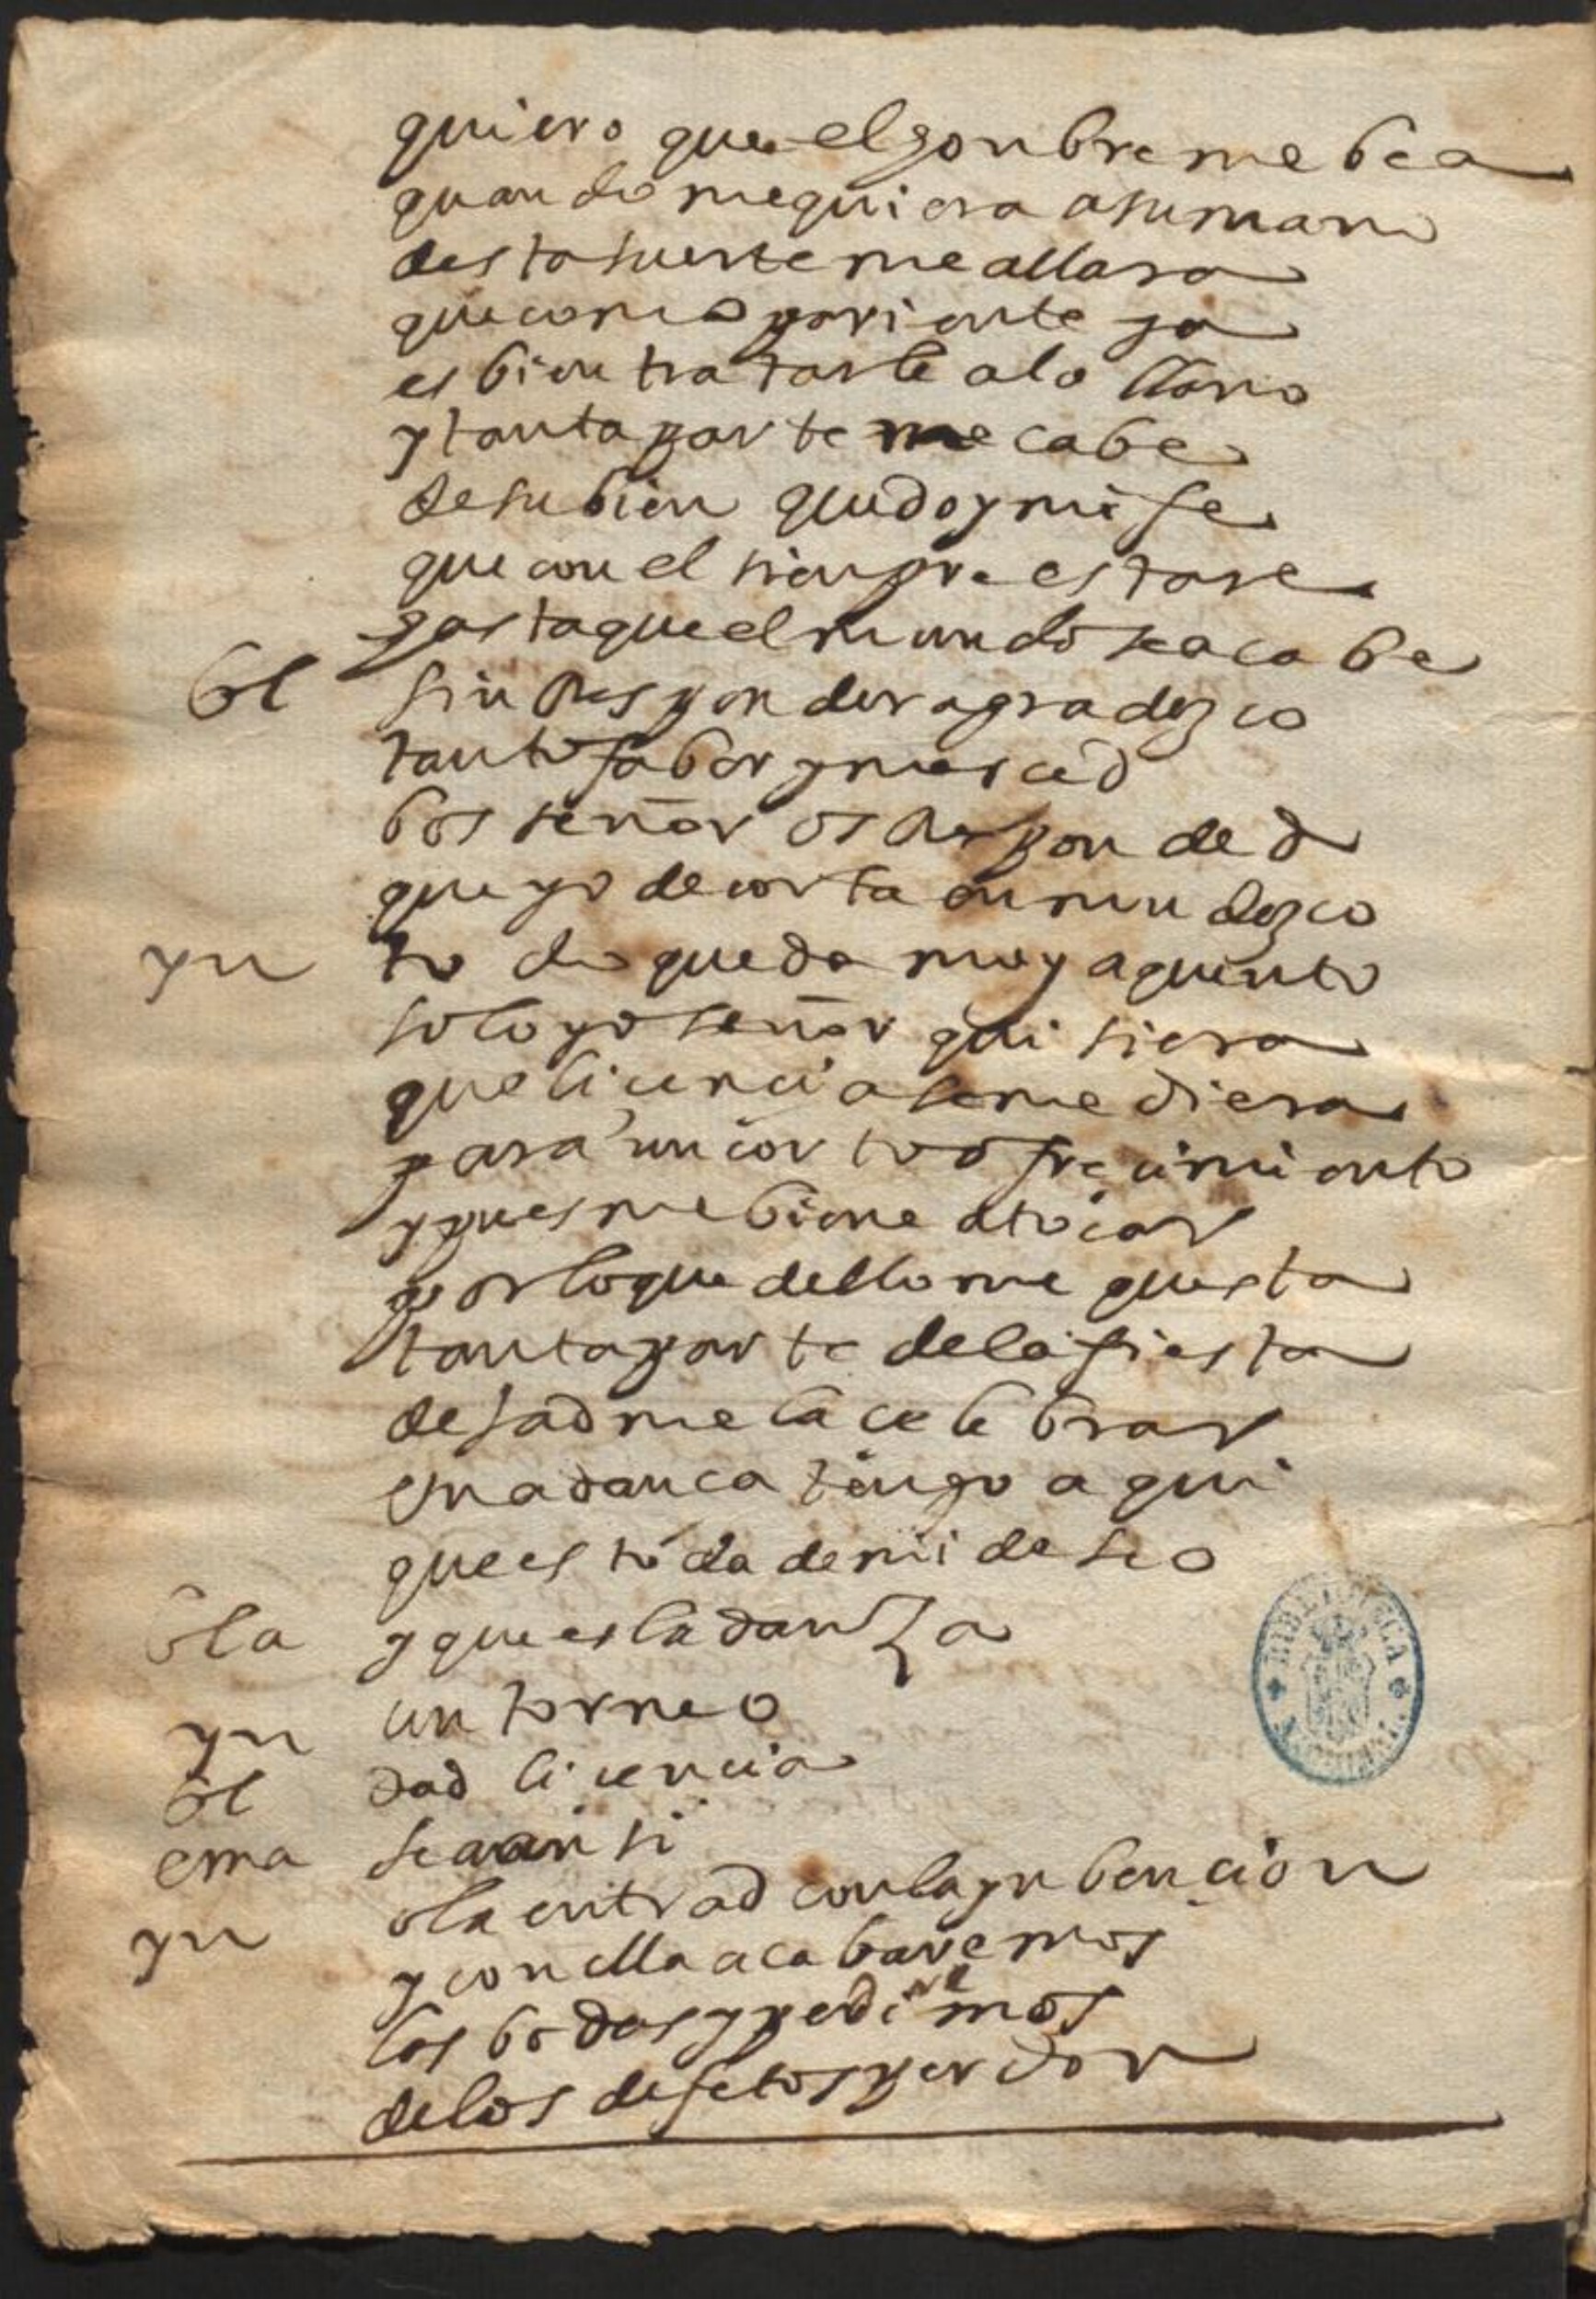 quiero que el honbre me bea
quando me quiera a su mano
desta suerte me allara
que como pariente ya
es bien tratarle a lo llano
y tanta parte me cabe
de su bien que doy mi fe
que con el sienpre estare
hasta que el mundo se acabe
bl sin responder agradezco
tanto fabor y merced
bos señor os responded
que yo de corta enmudezco
yn todo queda muy a quento
solo yo señor quisiera
que licencia se me diera
para un corto ofrecimiento
y pues me biene a tocar
por lo que dello me questa
tanta parte de la fiesta
dejadmela celebrar
una danca tengo aqui
que es toda de mi deseo
bla y que es la danza
yn un torneo
bl dad licencia
ema sea ansi
yn ola entrad con la ynbencion
y con ella acabaremos
las bodas y pediremos
de los defetos perdon
BIBLIOTECA NACIONAL